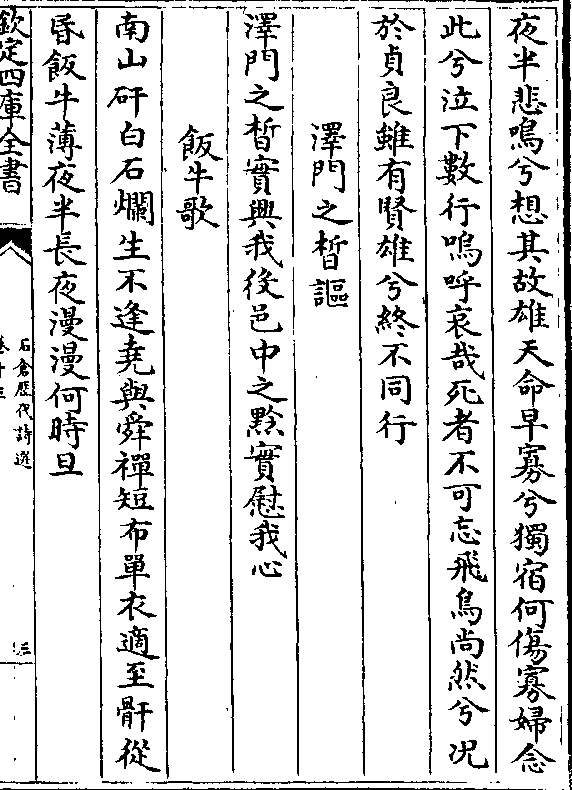 夜半悲鳴兮想其故雄天命早寡兮獨宿何傷寡婦念
此兮泣下數行嗚呼哀哉死者不可忘飛鳥尚然兮況
於貞良雖有賢雄兮終不同行
澤門之晳謳
澤門之晳實興我役邑中之黔實慰我心
飯牛歌
南山矸白石爛生不逢堯與舜禪短布單衣適至骭從
昏飯牛薄夜半長夜漫漫何時旦
欽定四庫全書
石倉歴代詩選
卷十三
三